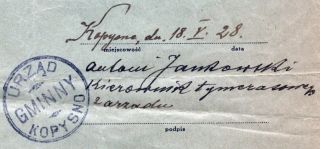 Kopysno, dn. 18. V. 28.
miejscowość data
URZĄD
GMINNY
KOPYSNO
Antoni Jankowski
Kierownik tymczasowego
zarządu
podpis